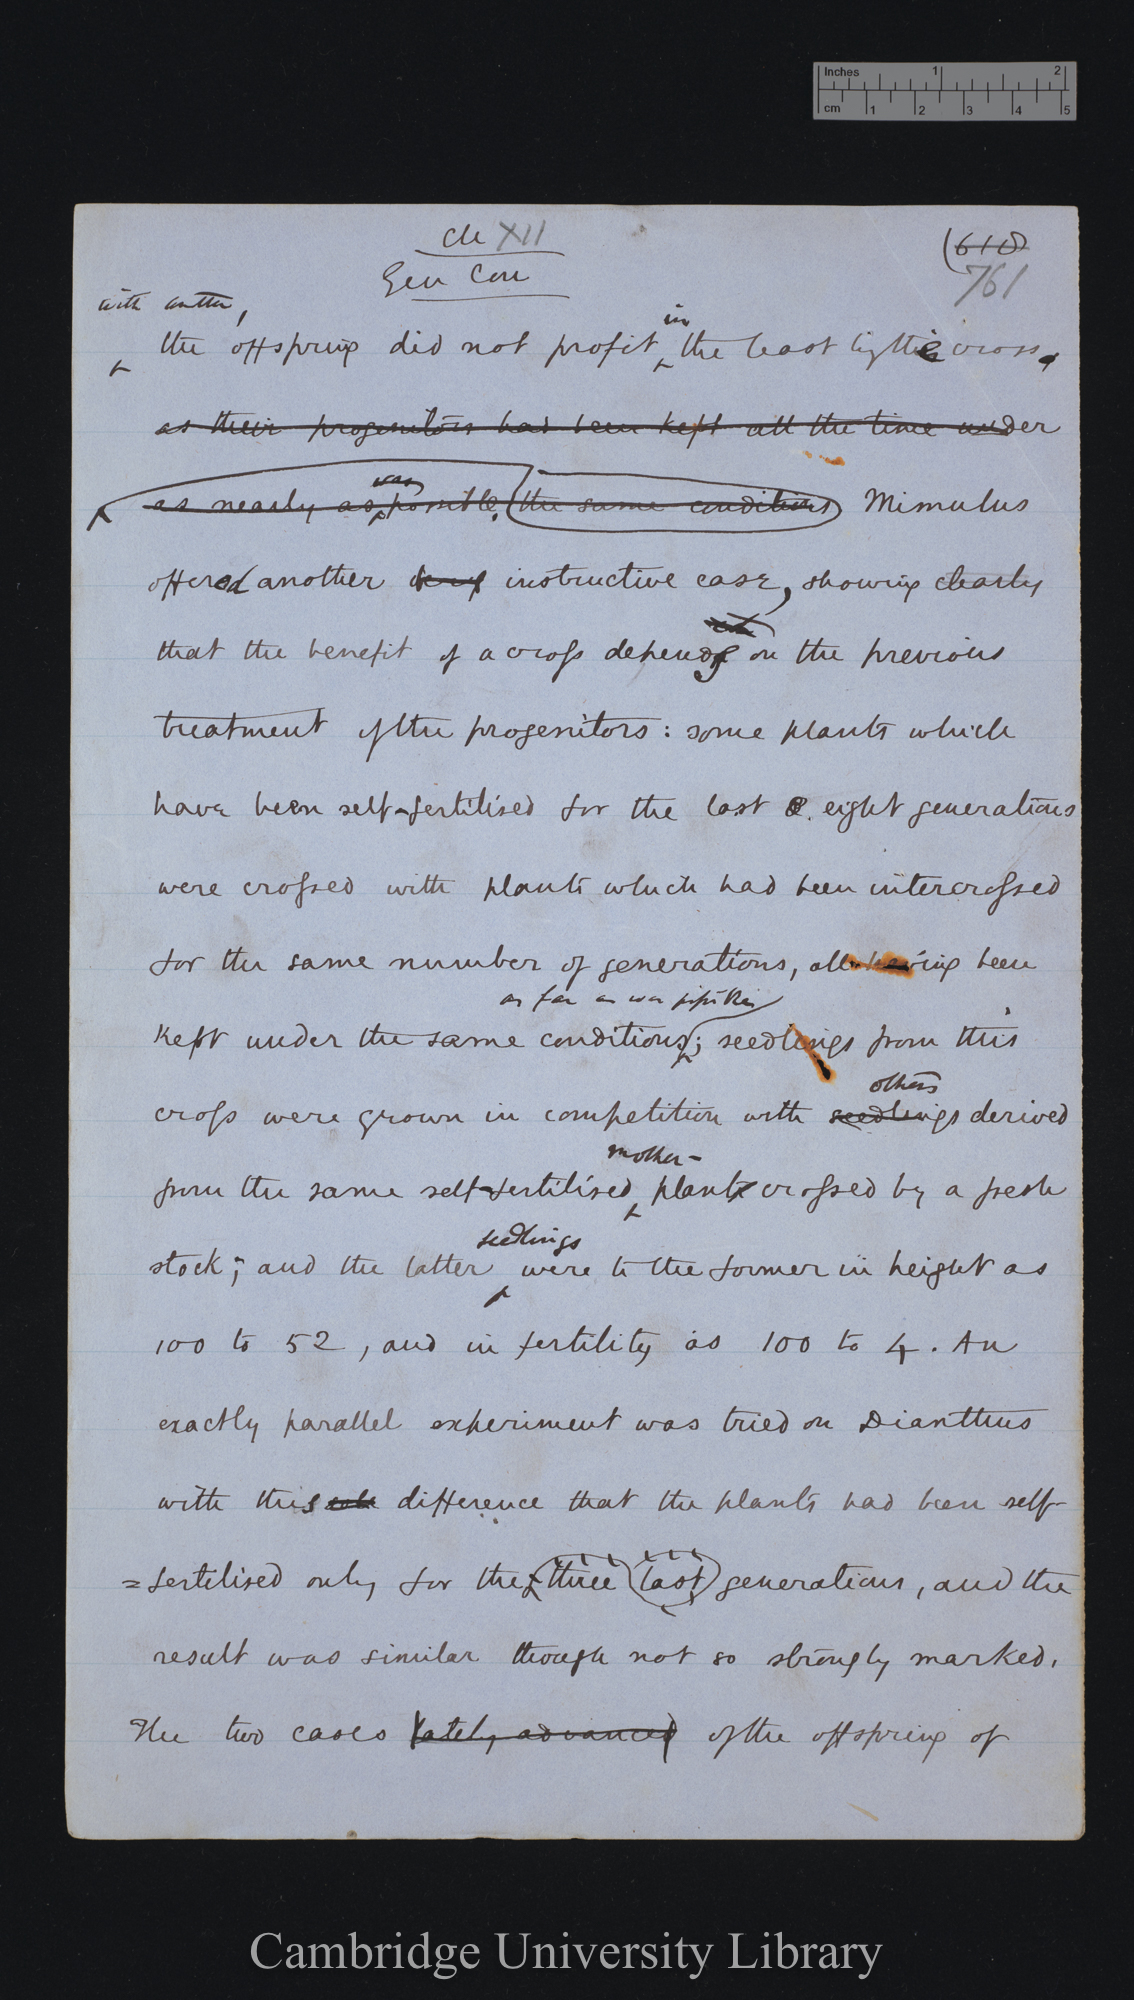 Inches 1 2
cm 1 2 3 4 5
Ch XII
(618)
Gen Con
761
with another,
in
the offspring did not profit the least by the cross.
as their progenitors had been kept all the time under
was
as nearly as possible, the same conditions Mimulus
offered another instructive case, showing clearly
that the benefit of a cross depends on the previous
treatment of the progenitors: some plants which
have been self-fertilised for the last 8. eight generations
were crossed with plants which had been intercrossed
for the same number of generations, all having been
as far as was possible
kept under the same conditions; seedlings from this
others
cross were grown in competition with seedlings derived
mother-
from the same self-fertilised plant crossed by a fresh
seedlings
stock; and the latter were to the former in height as
100 to 52, and in fertility as 100 to 4. An
exactly parallel experiment was tried on Dianthus
with this sole difference that the plants had been self-
=fertilised only for the three last generations, and the
result was similar though not so strongly marked.
The two cases lately advanced of the offspring of
Cambridge University Library